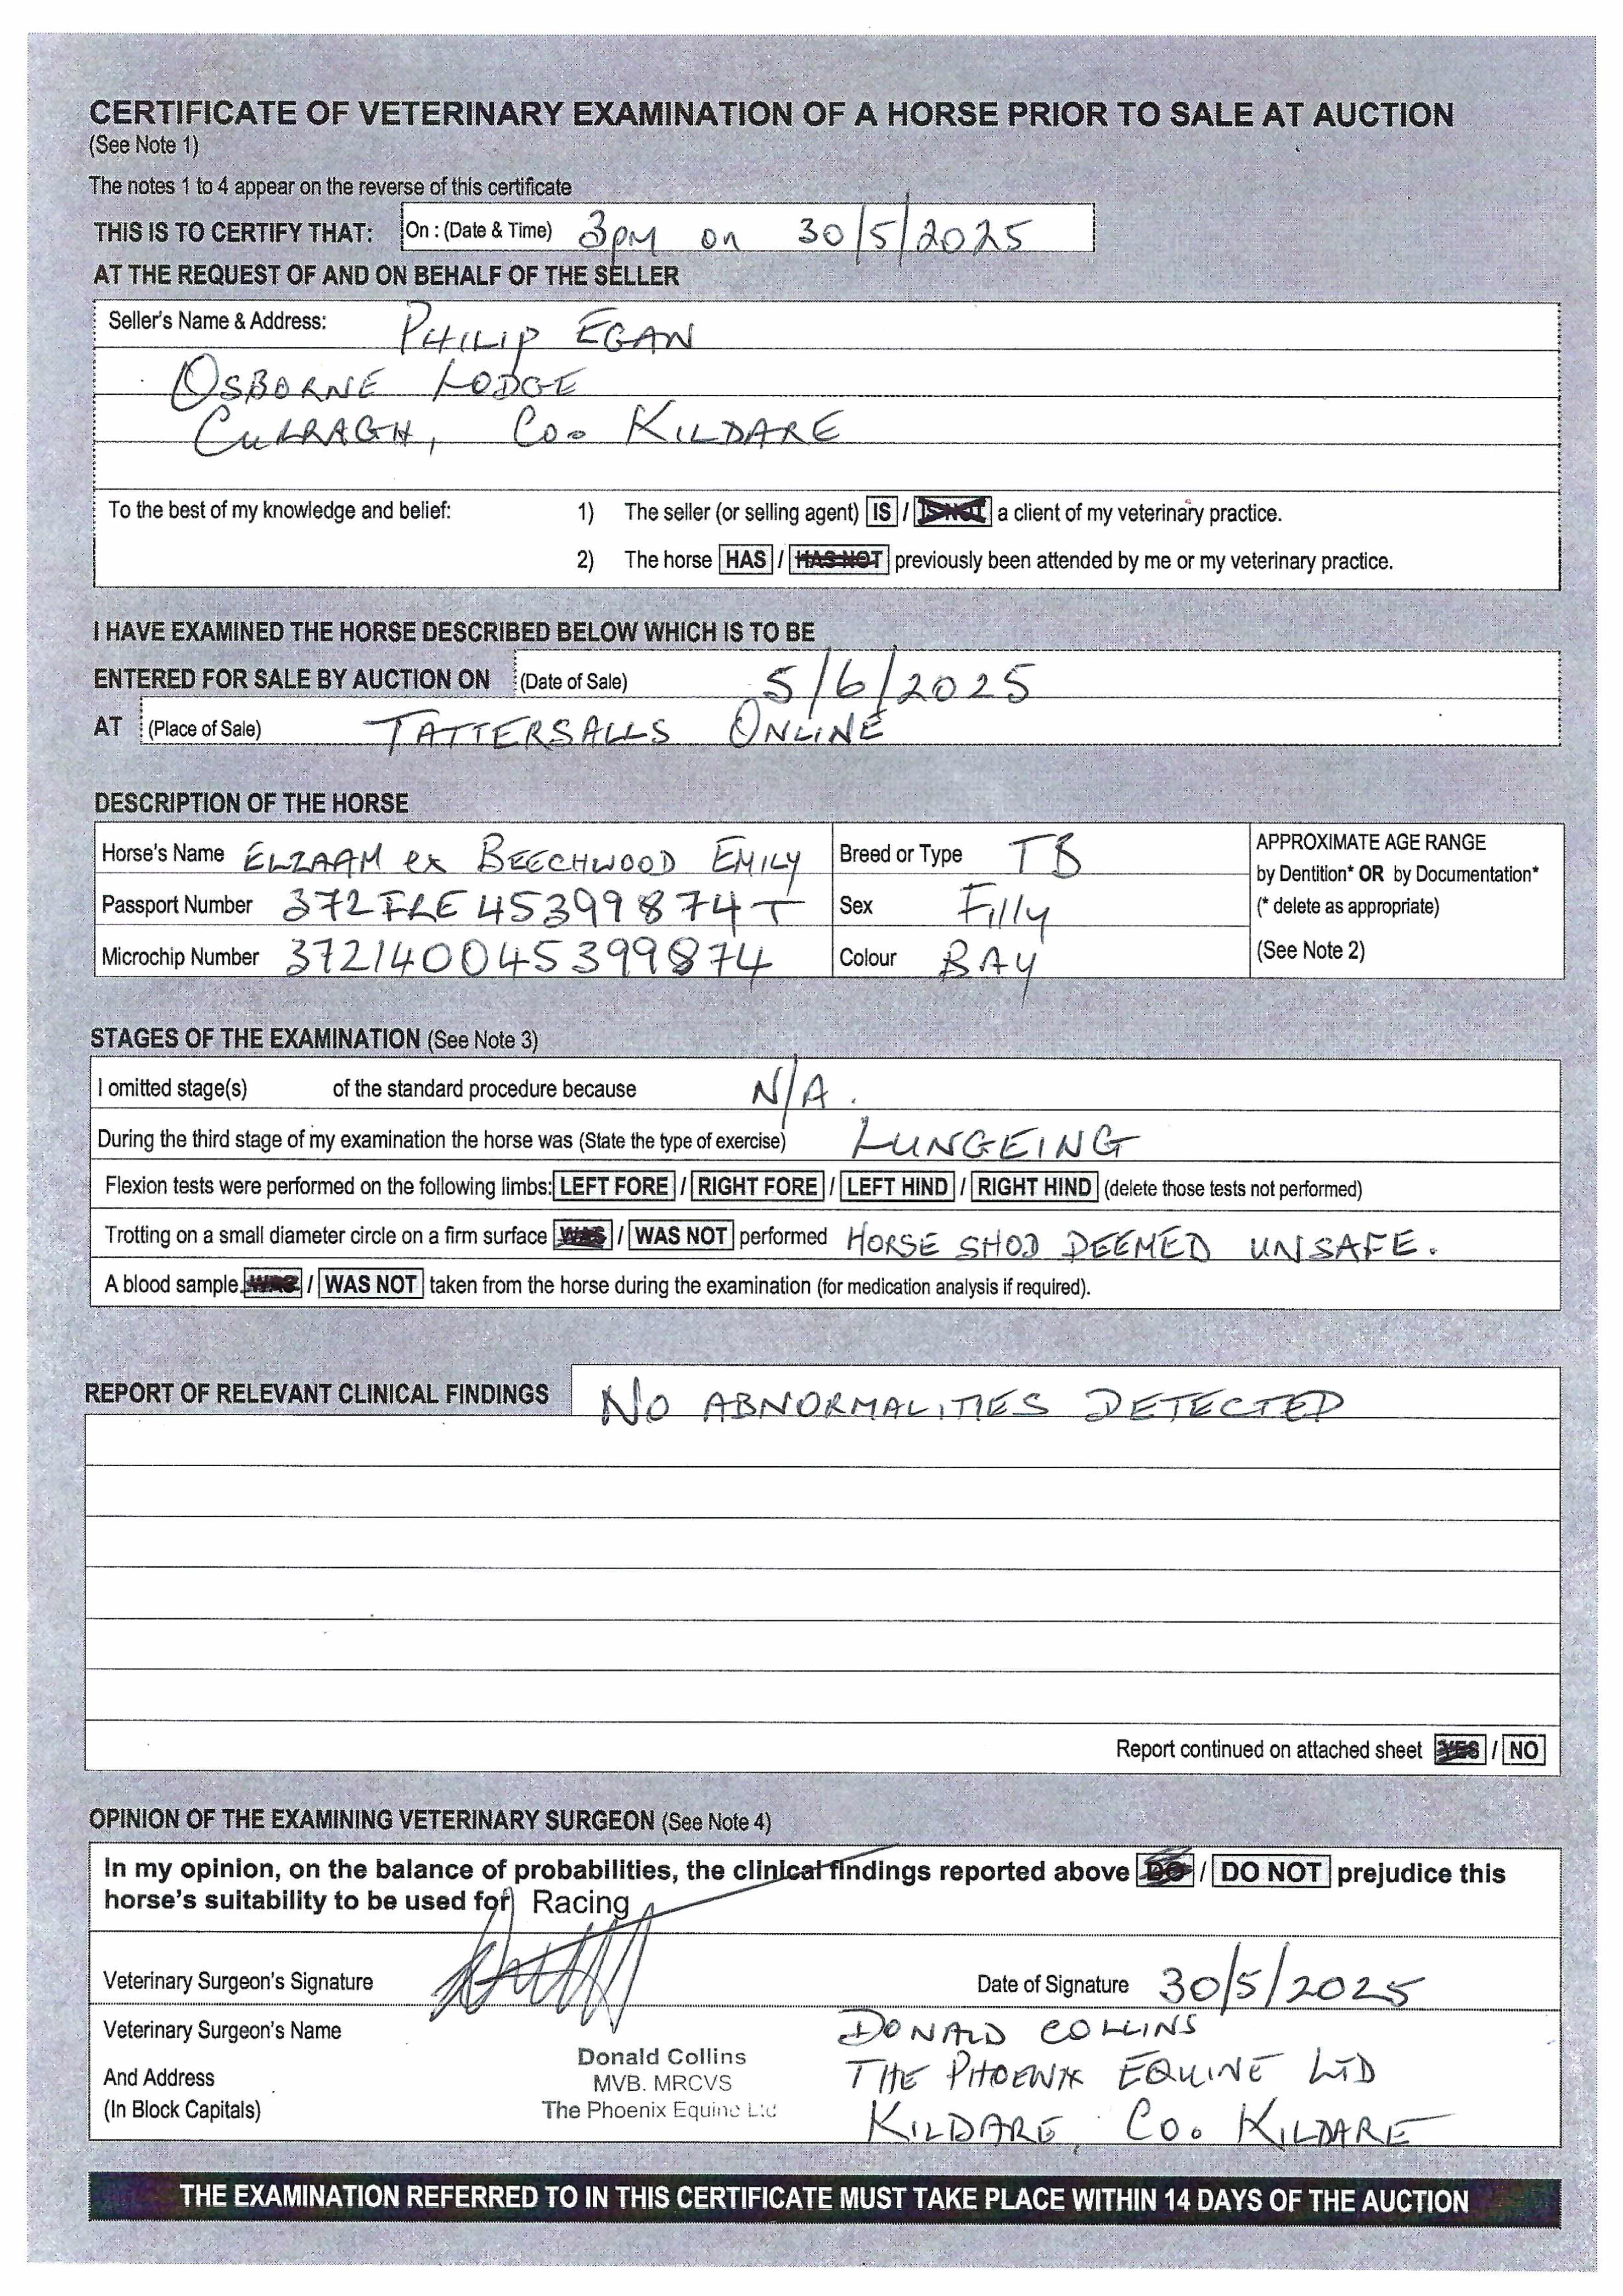 CERTIFICATE OF VETERINARY EXAMINATION OF A HORSE PRIOR TO SALE AT AUCTION
(See Note 1)
The notes 1 to 4 appear on the reverse of this certificate
THIS IS TO CERTIFY THAT: On : (Date & Time) 3PM on 30/5/2025
AT THE REQUEST OF AND ON BEHALF OF THE SELLER
Seller's Name & Address: PHILIP EGAN
OSBORNE LODGE
CURRAGH, Co. KILDARE
To the best of my knowledge and belief: 1) The seller (or selling agent) IS / IS NOT a client of my veterinary practice.
2) The horse HAS / HAS NOT previously been attended by me or my veterinary practice.
I HAVE EXAMINED THE HORSE DESCRIBED BELOW WHICH IS TO BE
ENTERED FOR SALE BY AUCTION ON (Date of Sale) 5/6/2025
AT (Place of Sale) TATTERSALLS ONLINE
DESCRIPTION OF THE HORSE
Horse's Name ELZAAM ex BEECHWOOD EMILY Breed or Type TB APPROXIMATE AGE RANGE
by Dentition* OR by Documentation*
Passport Number 372IRE45399874T Sex Filly (* delete as appropriate)
Microchip Number 372140045399874 Colour BAY (See Note 2)
STAGES OF THE EXAMINATION (See Note 3)
I omitted stage(s) of the standard procedure because N/A.
During the third stage of my examination the horse was (State the type of exercise) LUNGEING
Flexion tests were performed on the following limbs: LEFT FORE / RIGHT FORE / LEFT HIND / RIGHT HIND (delete those tests not performed)
Trotting on a small diameter circle on a firm surface WAS / WAS NOT performed HORSE SHOD DEEMED UNSAFE.
A blood sample WAS / WAS NOT taken from the horse during the examination (for medication analysis if required).
REPORT OF RELEVANT CLINICAL FINDINGS NO ABNORMALITIES DETECTED
Report continued on attached sheet YES / NO
OPINION OF THE EXAMINING VETERINARY SURGEON (See Note 4)
In my opinion, on the balance of probabilities, the clinical findings reported above DO / DO NOT prejudice this
horse's suitability to be used for Racing
Veterinary Surgeon's Signature Date of Signature 30/5/2025
Veterinary Surgeon's Name DONALD COLLINS
Donald Collins
And Address MVB. MRCVS THE PHOENIX EQUINE LTD
(In Block Capitals) The Phoenix Equine Ltd KILDARE, Co. KILDARE
THE EXAMINATION REFERRED TO IN THIS CERTIFICATE MUST TAKE PLACE WITHIN 14 DAYS OF THE AUCTION